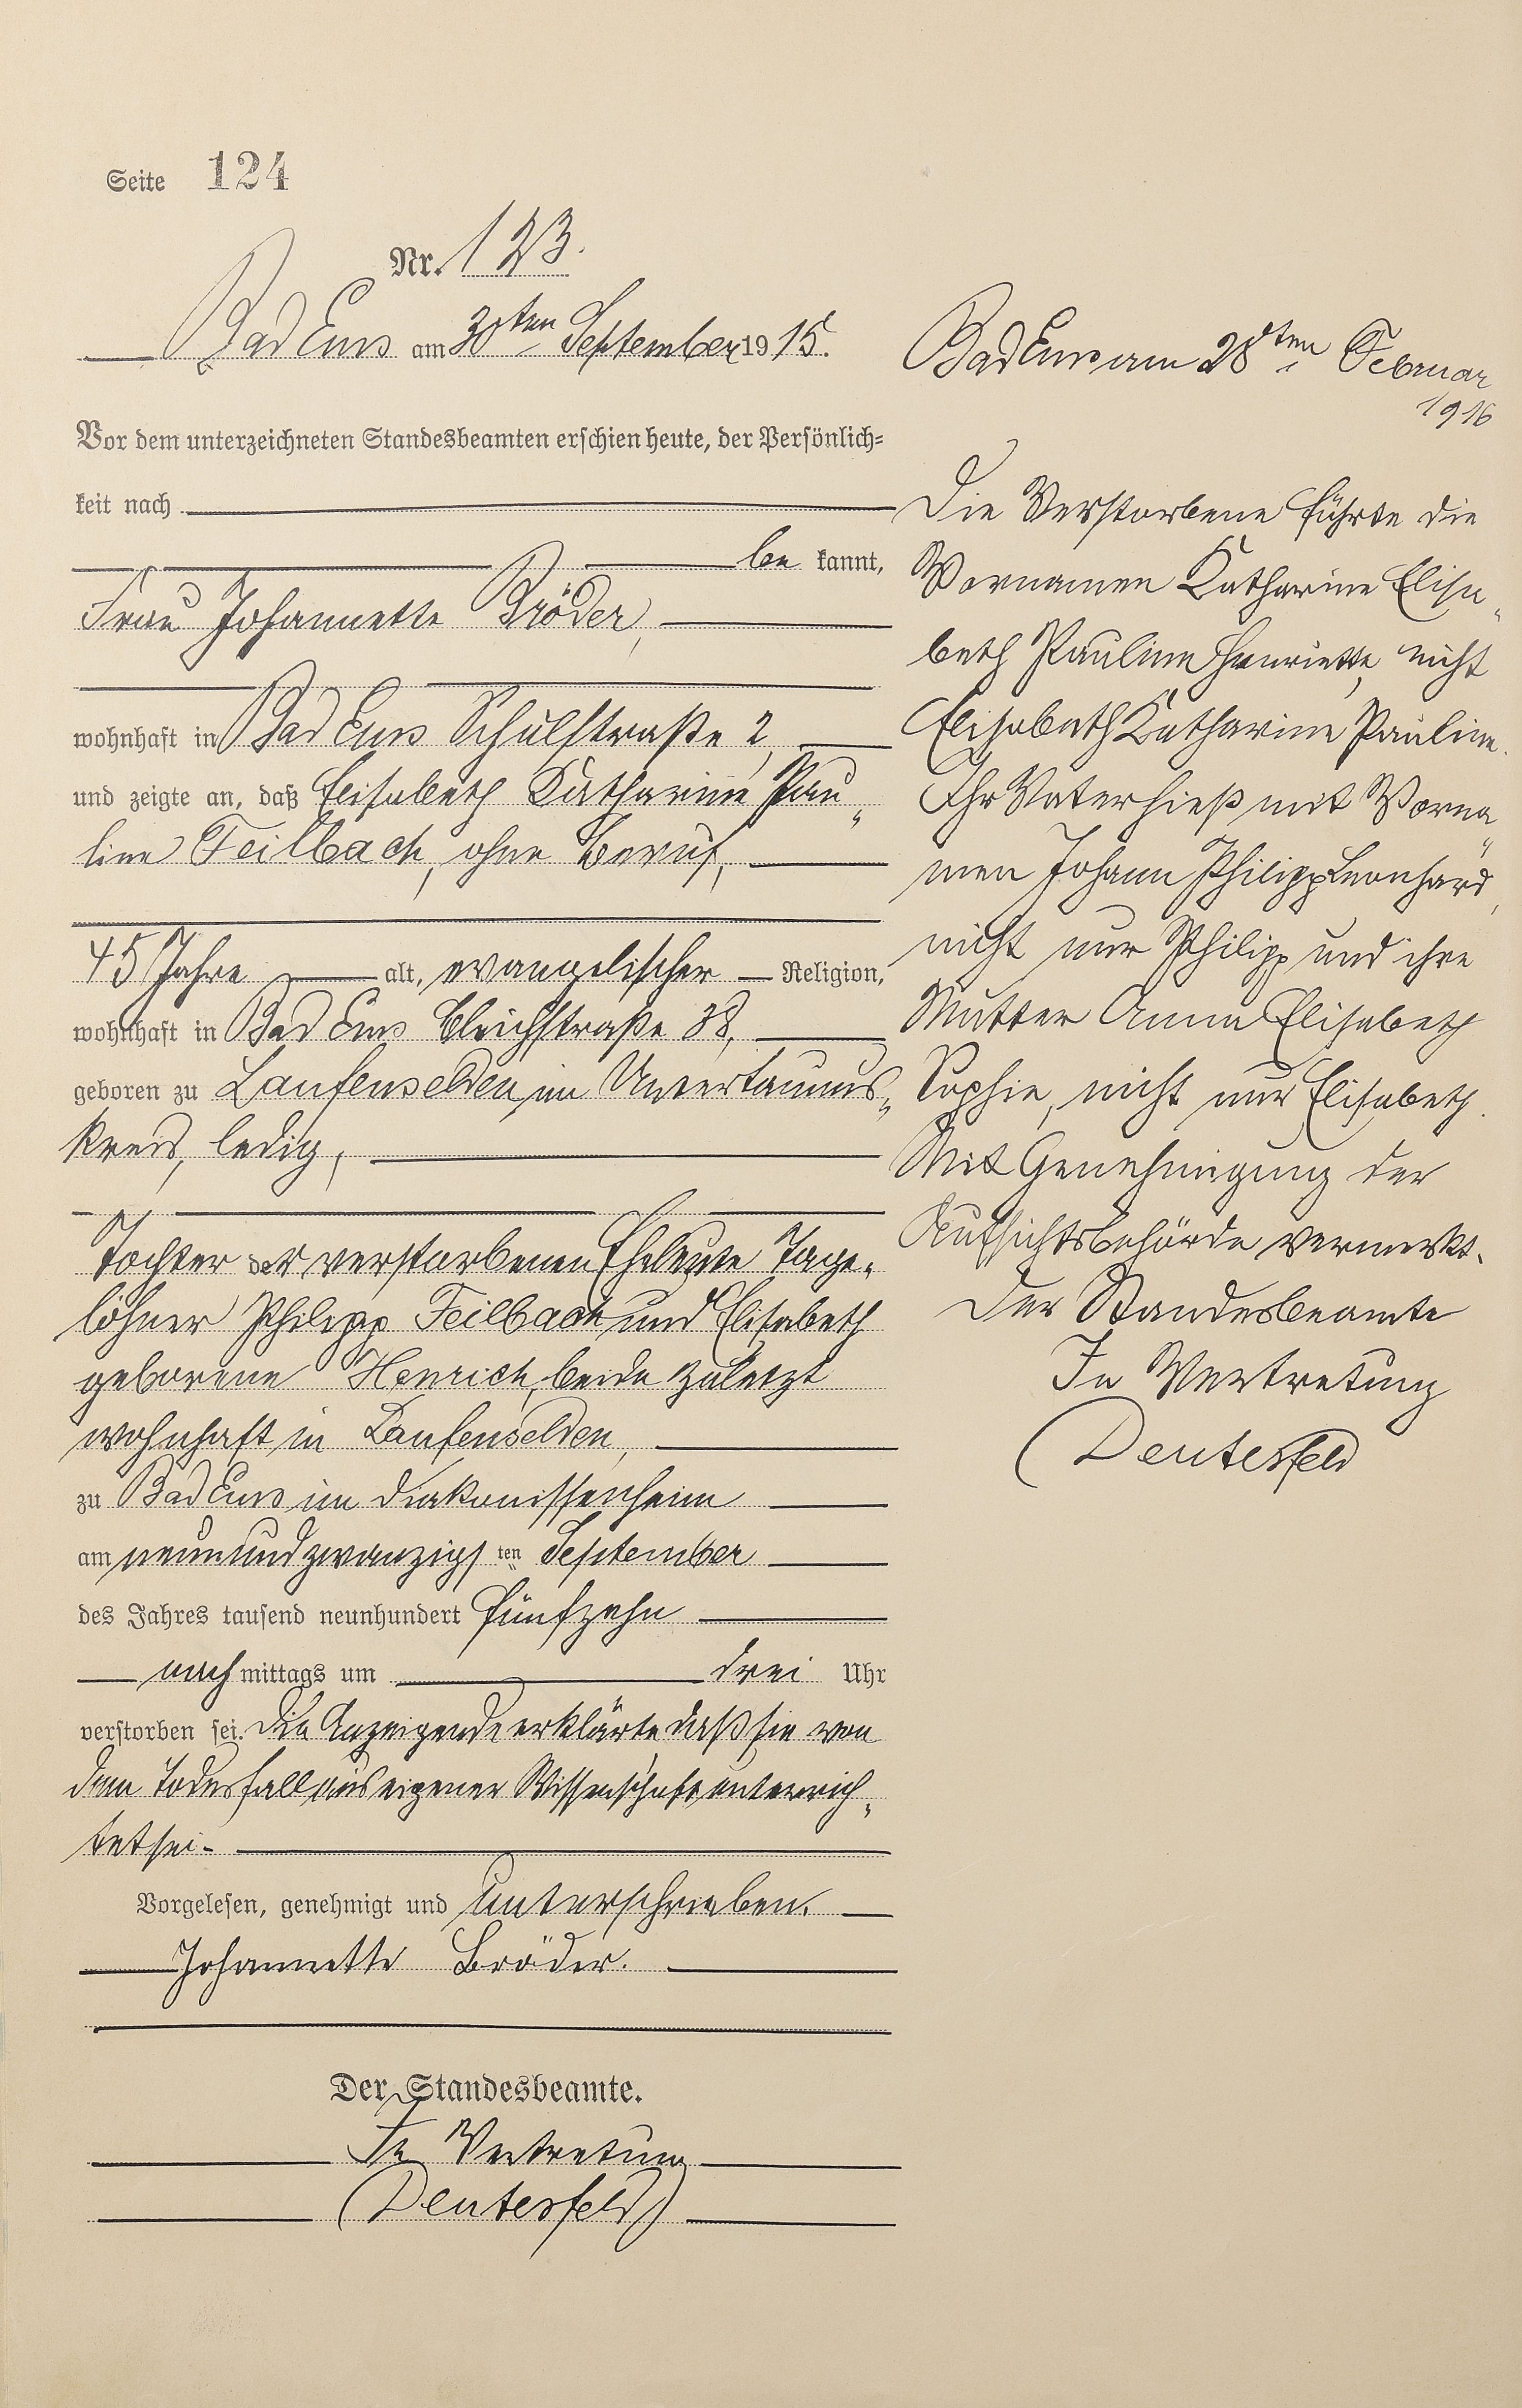 Seite 124
Nr. 123.
Bad Ems am 30ten September 1915.
Vor dem unterzeichneten Standesbeamten erschien heute, der Persönlich=
keit nach
be kannt,
Frau Johannette Bröder,
wohnhaft in Bad Ems Schulstraße 2,
und zeigte an, daß Elisabeth Katharine Pau„
line Feilbach, ohne Beruf,
45 Jahre alt, evangelischer Religion,
wohnhaft in Bad Ems Bleichstraße 38,
geboren zu Laufenselden im Untertaunus„
kreis, ledig,
Tochter der verstorbenen Eheleute Tage„
löhner Philipp Feilbach und Elisabeth
geborene Henrich, beide zuletzt
wohnhaft in Laufenselden,
zu Bad Ems im Diakonissenheim
am neunundzwanzigsten September
des Jahres tausend neunhundert fünfzehn
nach mittags um drei Uhr
verstorben sei. Die Anzeigende erklärte daß sie von
dem Todesfall aus eigener Wissenschaft unterrich„
tet sei.
Vorgelesen, genehmigt und unterschrieben.
Johannette Bröder.
Der Standesbeamte.
In Vertretung
(Deutesfeld)
Bad Ems am 28ten Februar
1916
Die Verstorbene führte die
Vornamen Katharine Elisa„
beth Pauline Henriette, nicht
Elisabeth Katharine Pauline.
Ihr Vater hieß mit Vorna„
men Johann Philipp Leonhard,
nicht nur Philipp und ihre
Mutter Anna Elisabeth
Sophie, nicht nur Elisabeth.
Mit Genehmigung der
Aufsichtsbehörde vermerkt.
Der Standesbeamte
In Vertretung
(Deutesfeld